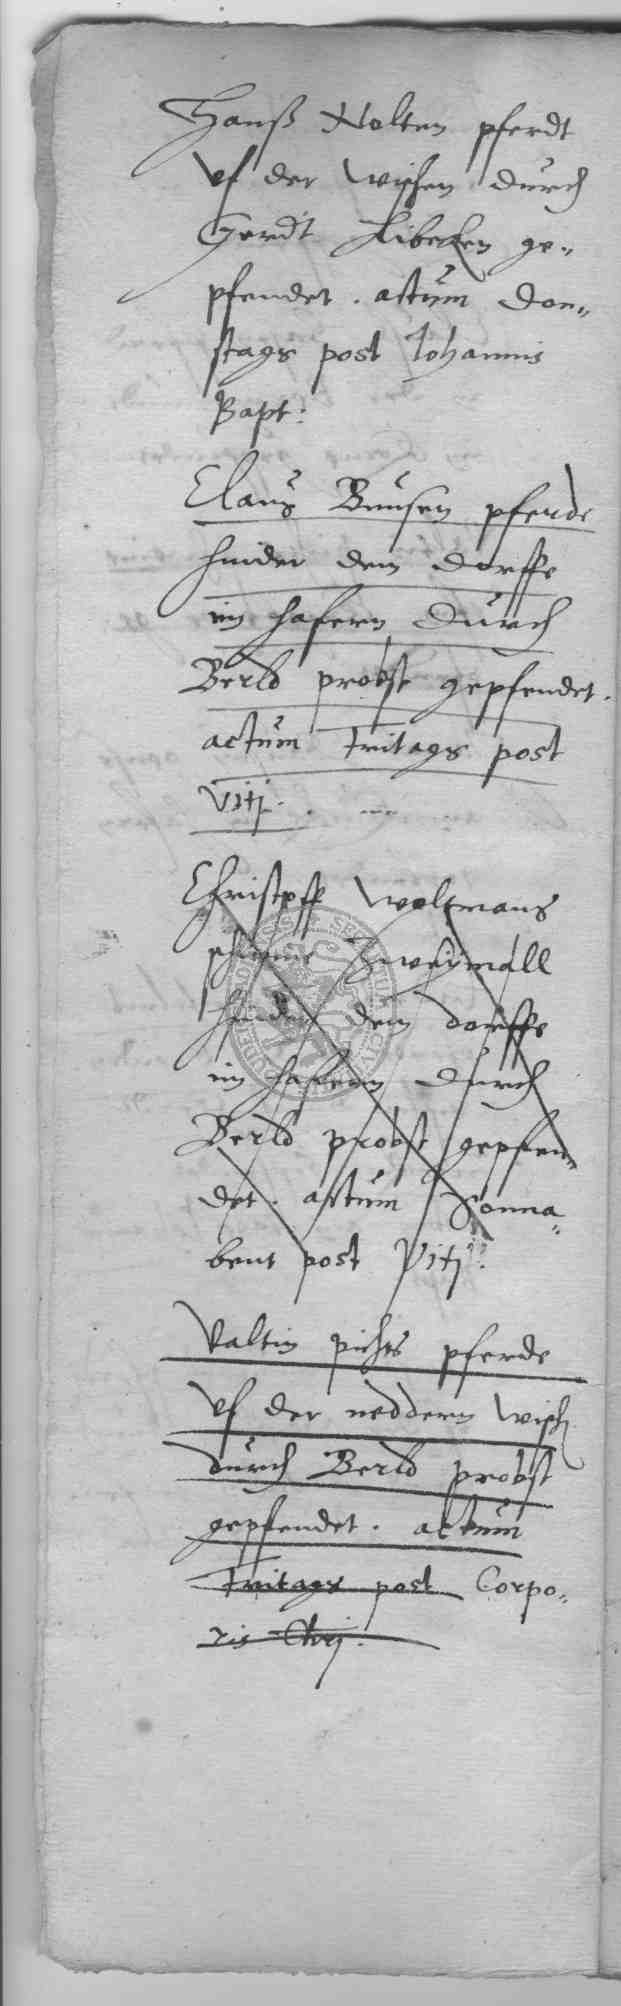 Hanß Nolten pferdt
vf der wischen durch
Gerdt Libecken ge-
pfendet. actum don-
stags post Johannis
Bapt:
Claus Bunsen pferde
hinder dem dorffe
im hafern durch
Berld probst gepfendet.
actum Fritags post
Viti.
Christoff Woltmans
zweymall
hinder dem dorffe
im hafern durch
Berld probst gepfen-
det. actum Sonna-
bent post Viti.
Valtin pichts pferde
vf der neddern wisch
durch Berld probst
gepfendet. actum
Fritags post Corpo-
ris Chri.